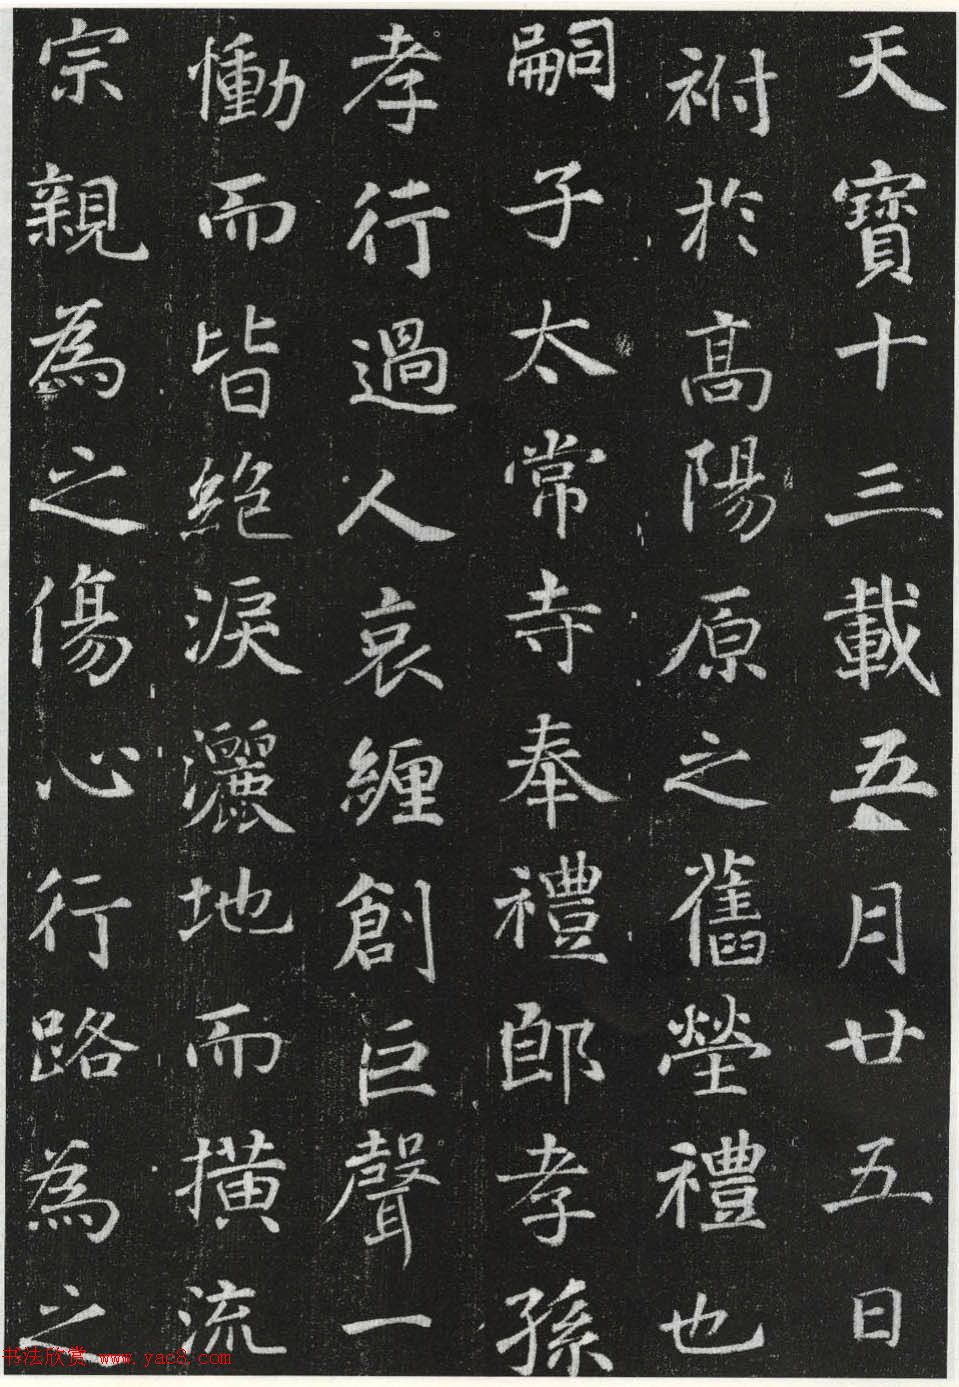 天寶十三載五月廿五日
祔於高陽原之舊塋禮也
嗣子太常寺奉禮郎孝孫
孝行過人哀纏創巨聲一
慟而皆絶淚灑地而撗流
宗親為之傷心行路為之
书法欣赏 www.yac8.com